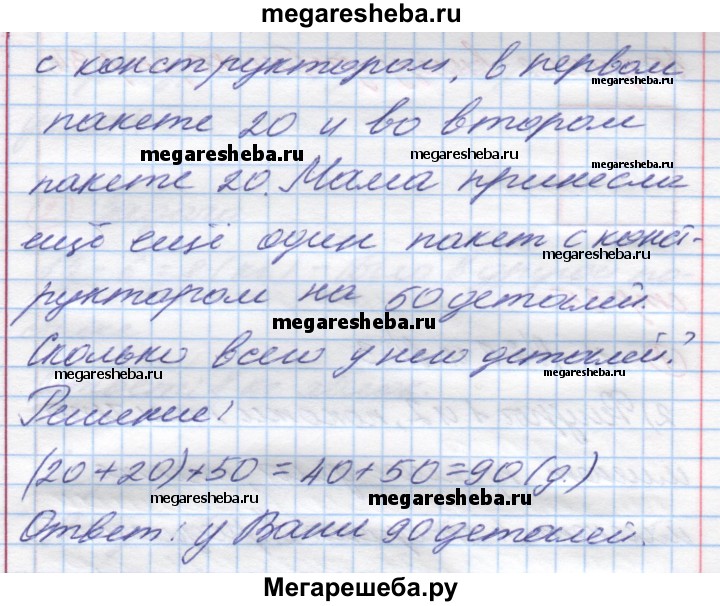 megaresheba.ru
с конструктором, в первом
megaresheba.ru
пакете 20 и во втором
megaresheba.ru megaresheba.ru megaresheba.ru
пакете 20. Мама принесла
ещё ещё один пакет с конст-
megaresheba.ru
руктором на 50 деталей.
megaresheba.ru
Сколько всего у него деталей?
megaresheba.ru megaresheba.ru
Решение:
(20+20)+50=40+50=90(д.)
megaresheba.ru megaresheba.ru
Ответ: у Вани 90 деталей.
Мегарешеба.ру